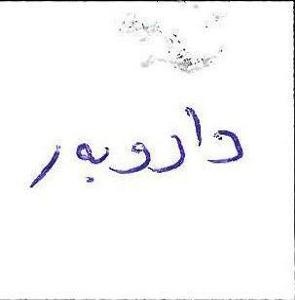 داروبر